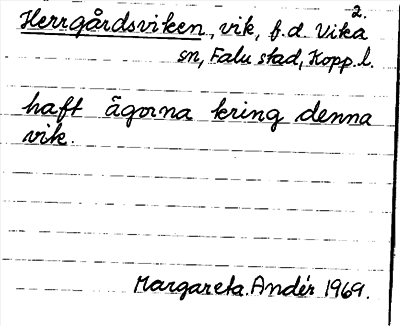 2.
Herrgårdsviken, vik, f.d. Vika
sn, Falu stad, Kopp.l.
haft ägorna kring denna
vik.
Margareta Andér 1969.